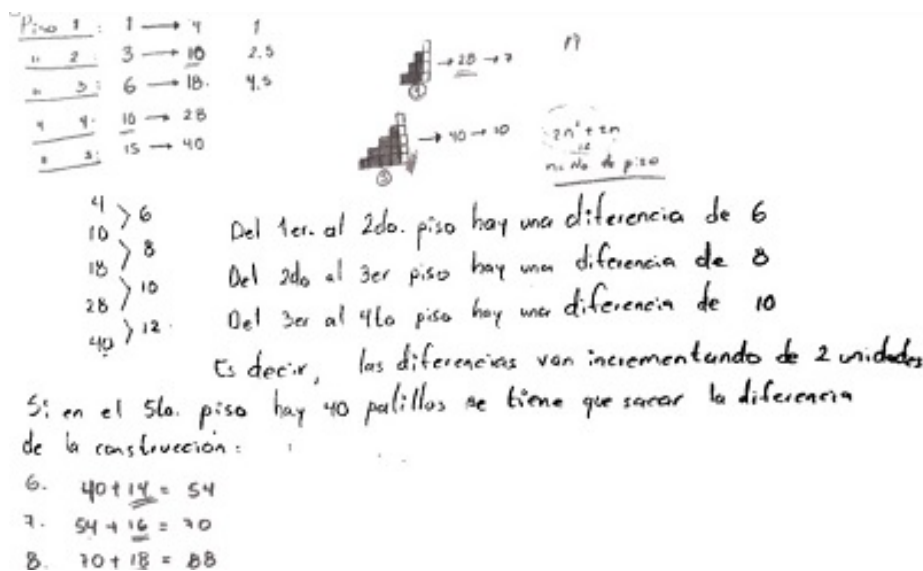 Piso 1: 1 → 4 1
" 2: 3 → 10 2.5
" 3: 6 → 18. 4.5
" 4. 10 → 28
" 5: 15 → 40
→ 28 → 7
④
→ 40 → 10
⑤
n: No de piso
4
10
18
28
40
> 6
> 8
> 10
> 12.
Del 1er. al 2do. piso hay una diferencia de 6
Del 2do al 3er piso hay una diferencia de 8
Del 3er al 4to piso hay una diferencia de 10
Es decir, las diferencias van incrementando de 2 unidades
Si en el 5to. piso hay 40 palillos se tiene que sacar la diferencia
de la construcción:
6. 40 + 14 = 54
7. 54 + 16 = 70
8. 70 + 18 = 88